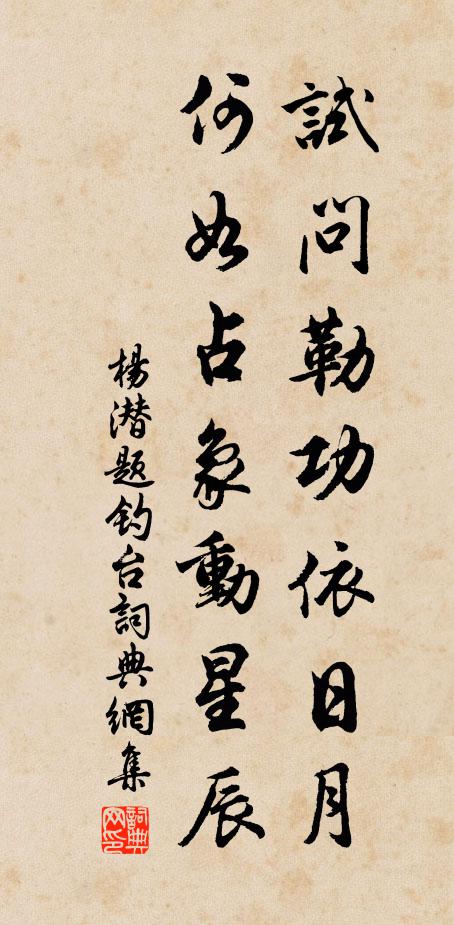 試問勒功依日月
何如占象動星辰
楊潛題釣台詞典網集
詞典网印